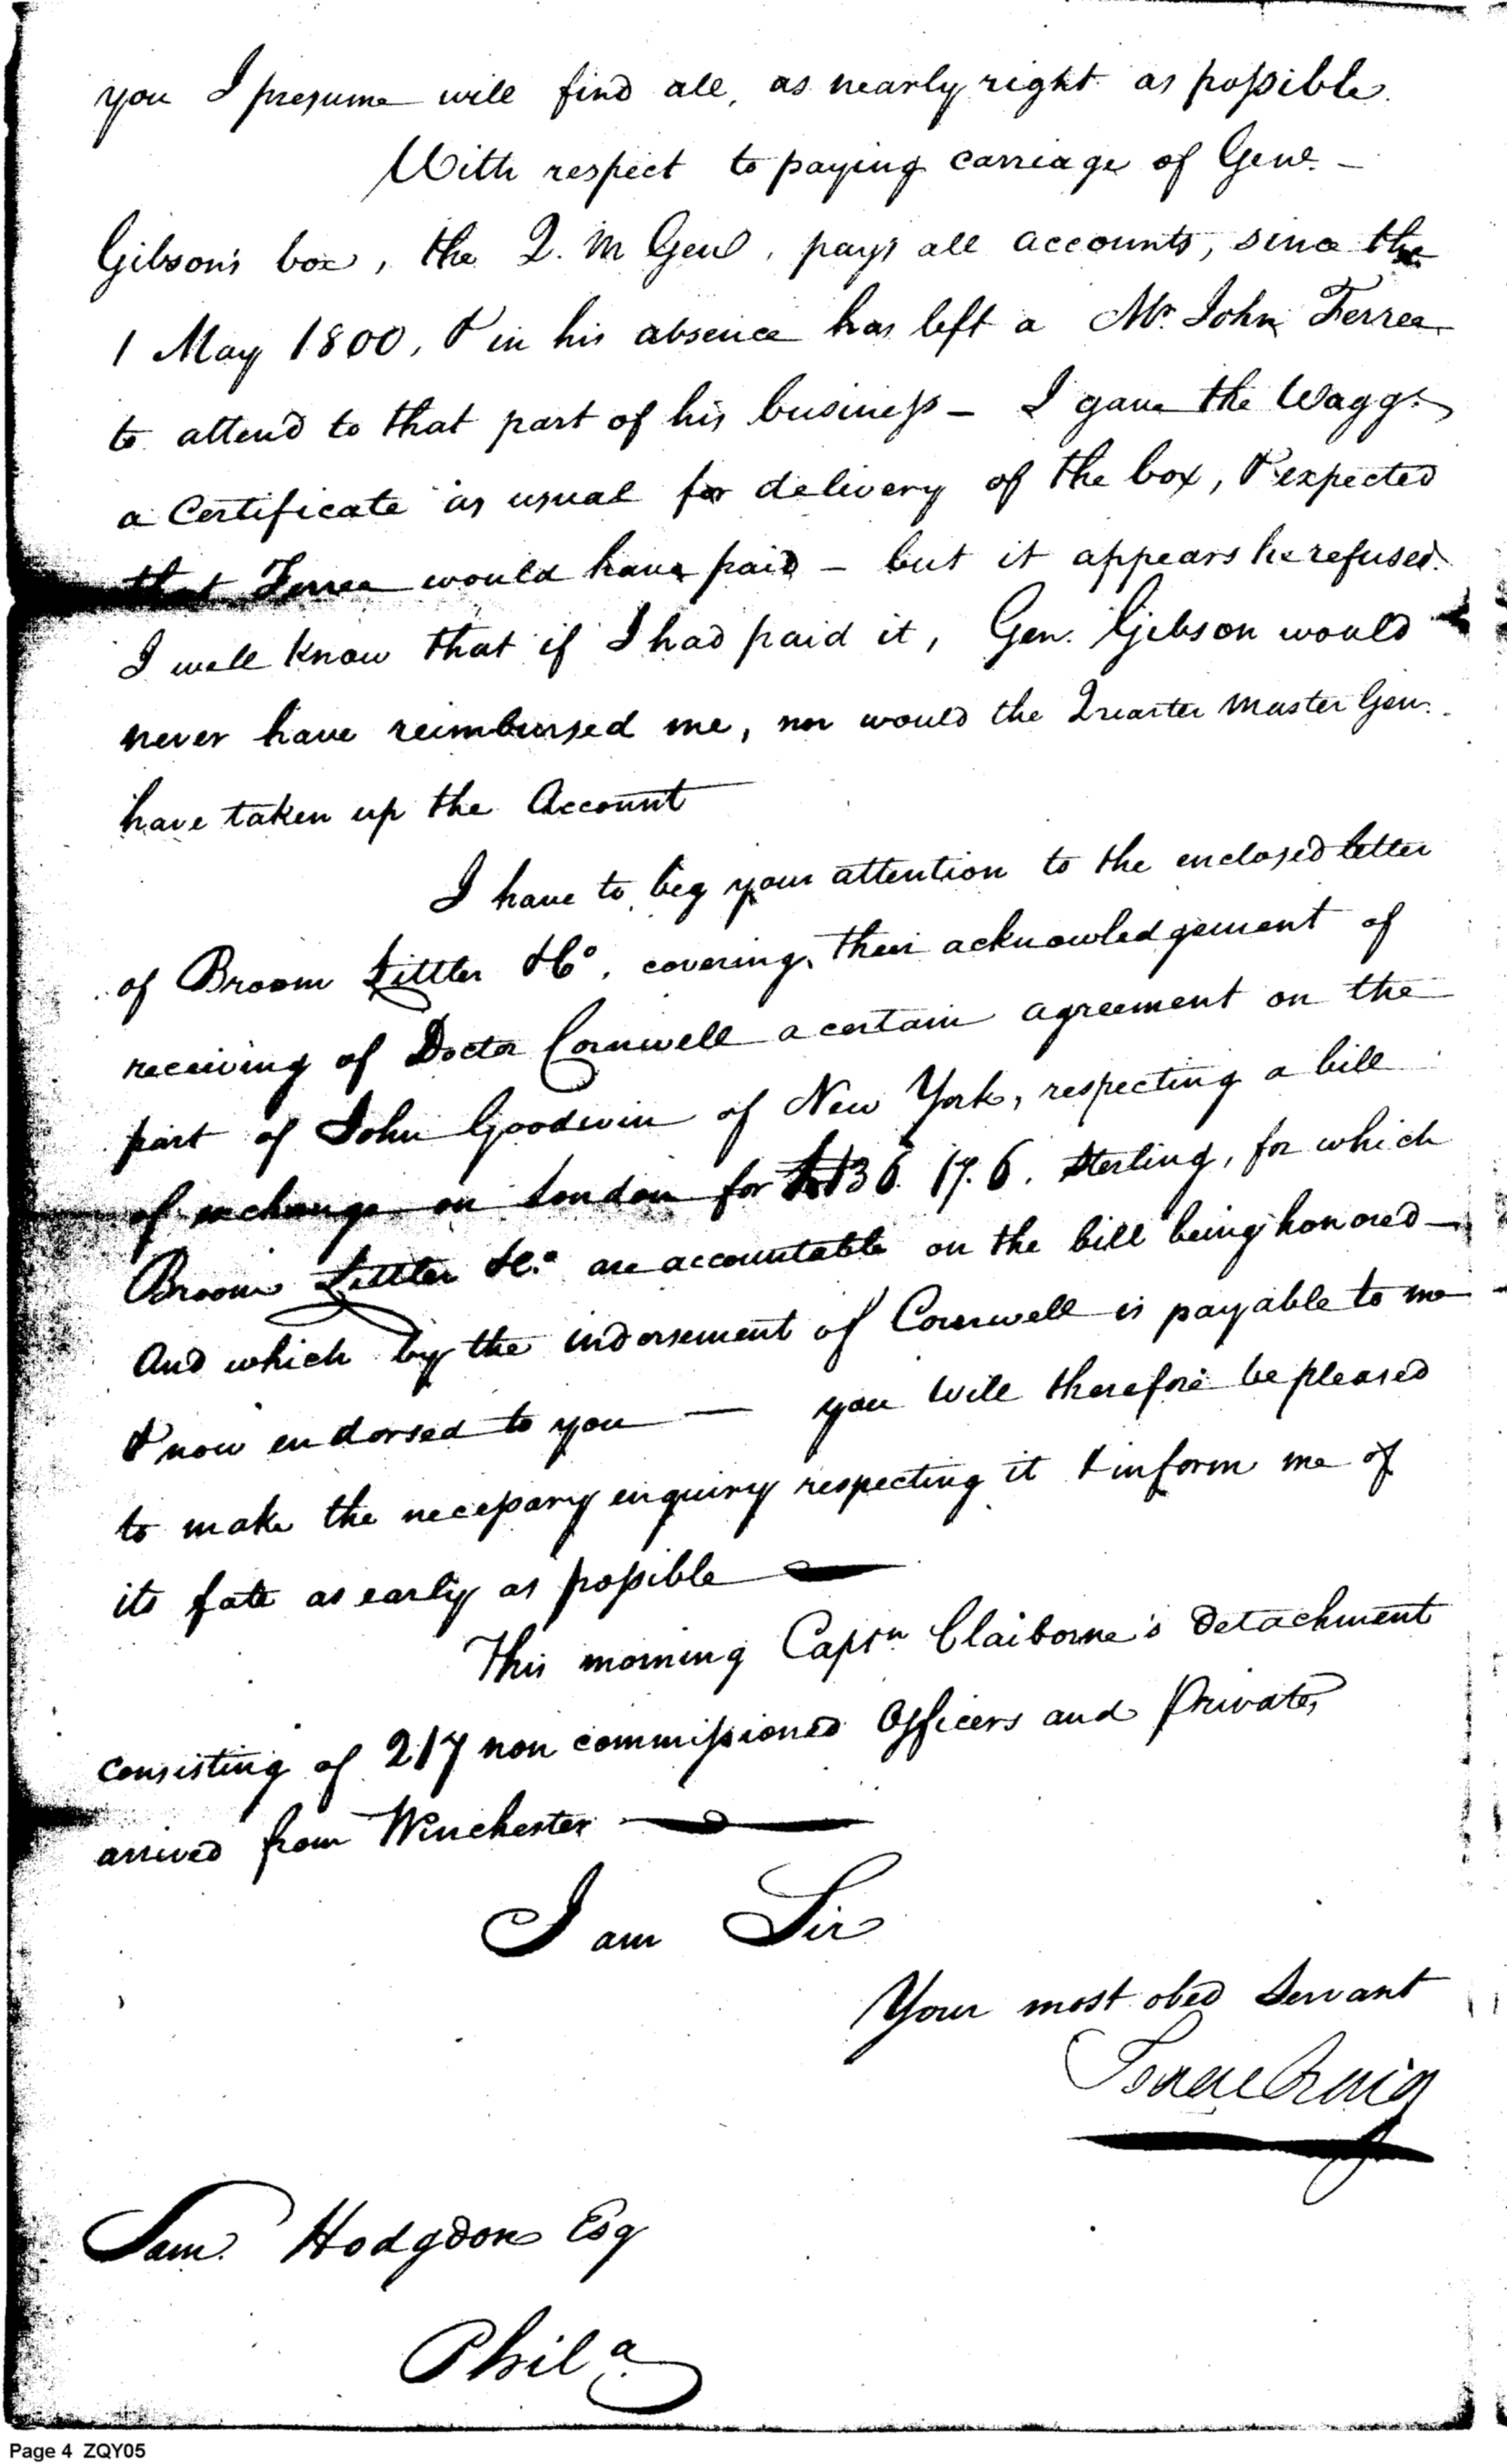 you I presume will find all, as nearly right as possible.
With respect to paying carriage of Genl. –
Gibson's box, the Q. M Genl, pays all accounts, since the
1 May 1800, & in his absence has left a Mr. John Ferree
to attend to that part of his business – I gave the Waggr.
a Certificate as usual for delivery of the box, & expected
that Ferree would have paid – but it appears he refused.
I well know that if I had paid it, Gen. Gibson would
never have reimbursed me, nor would the Quarter Master Gen.
have taken up the Account
I have to beg your attention to the enclosed letter
of Broom Littler & Co. covering, their acknowledgement of
receiving of Doctor Cornwell a certain agreement on the
part of John Goodwin of New York, respecting a bill
of exchange on London for £136. 17. 6. Sterling, for which
Broom Littler & Co. are accountable on the bill being honored –
And which by the indorsement of Cornwell is payable to me
& now endorsed to you — you will therefore be pleased
to make the necessary enquiry respecting it & inform me of
its fate as early as possible —
This morning Captn Claiborne's Detachment
consisting of 217 non commissioned Officers and Privates
arrived from Winchester —
I am Sir
Your most obed Servant
Isaac Craig
Sam. Hodgdon Esq
Phila.
Page 4 ZQY05